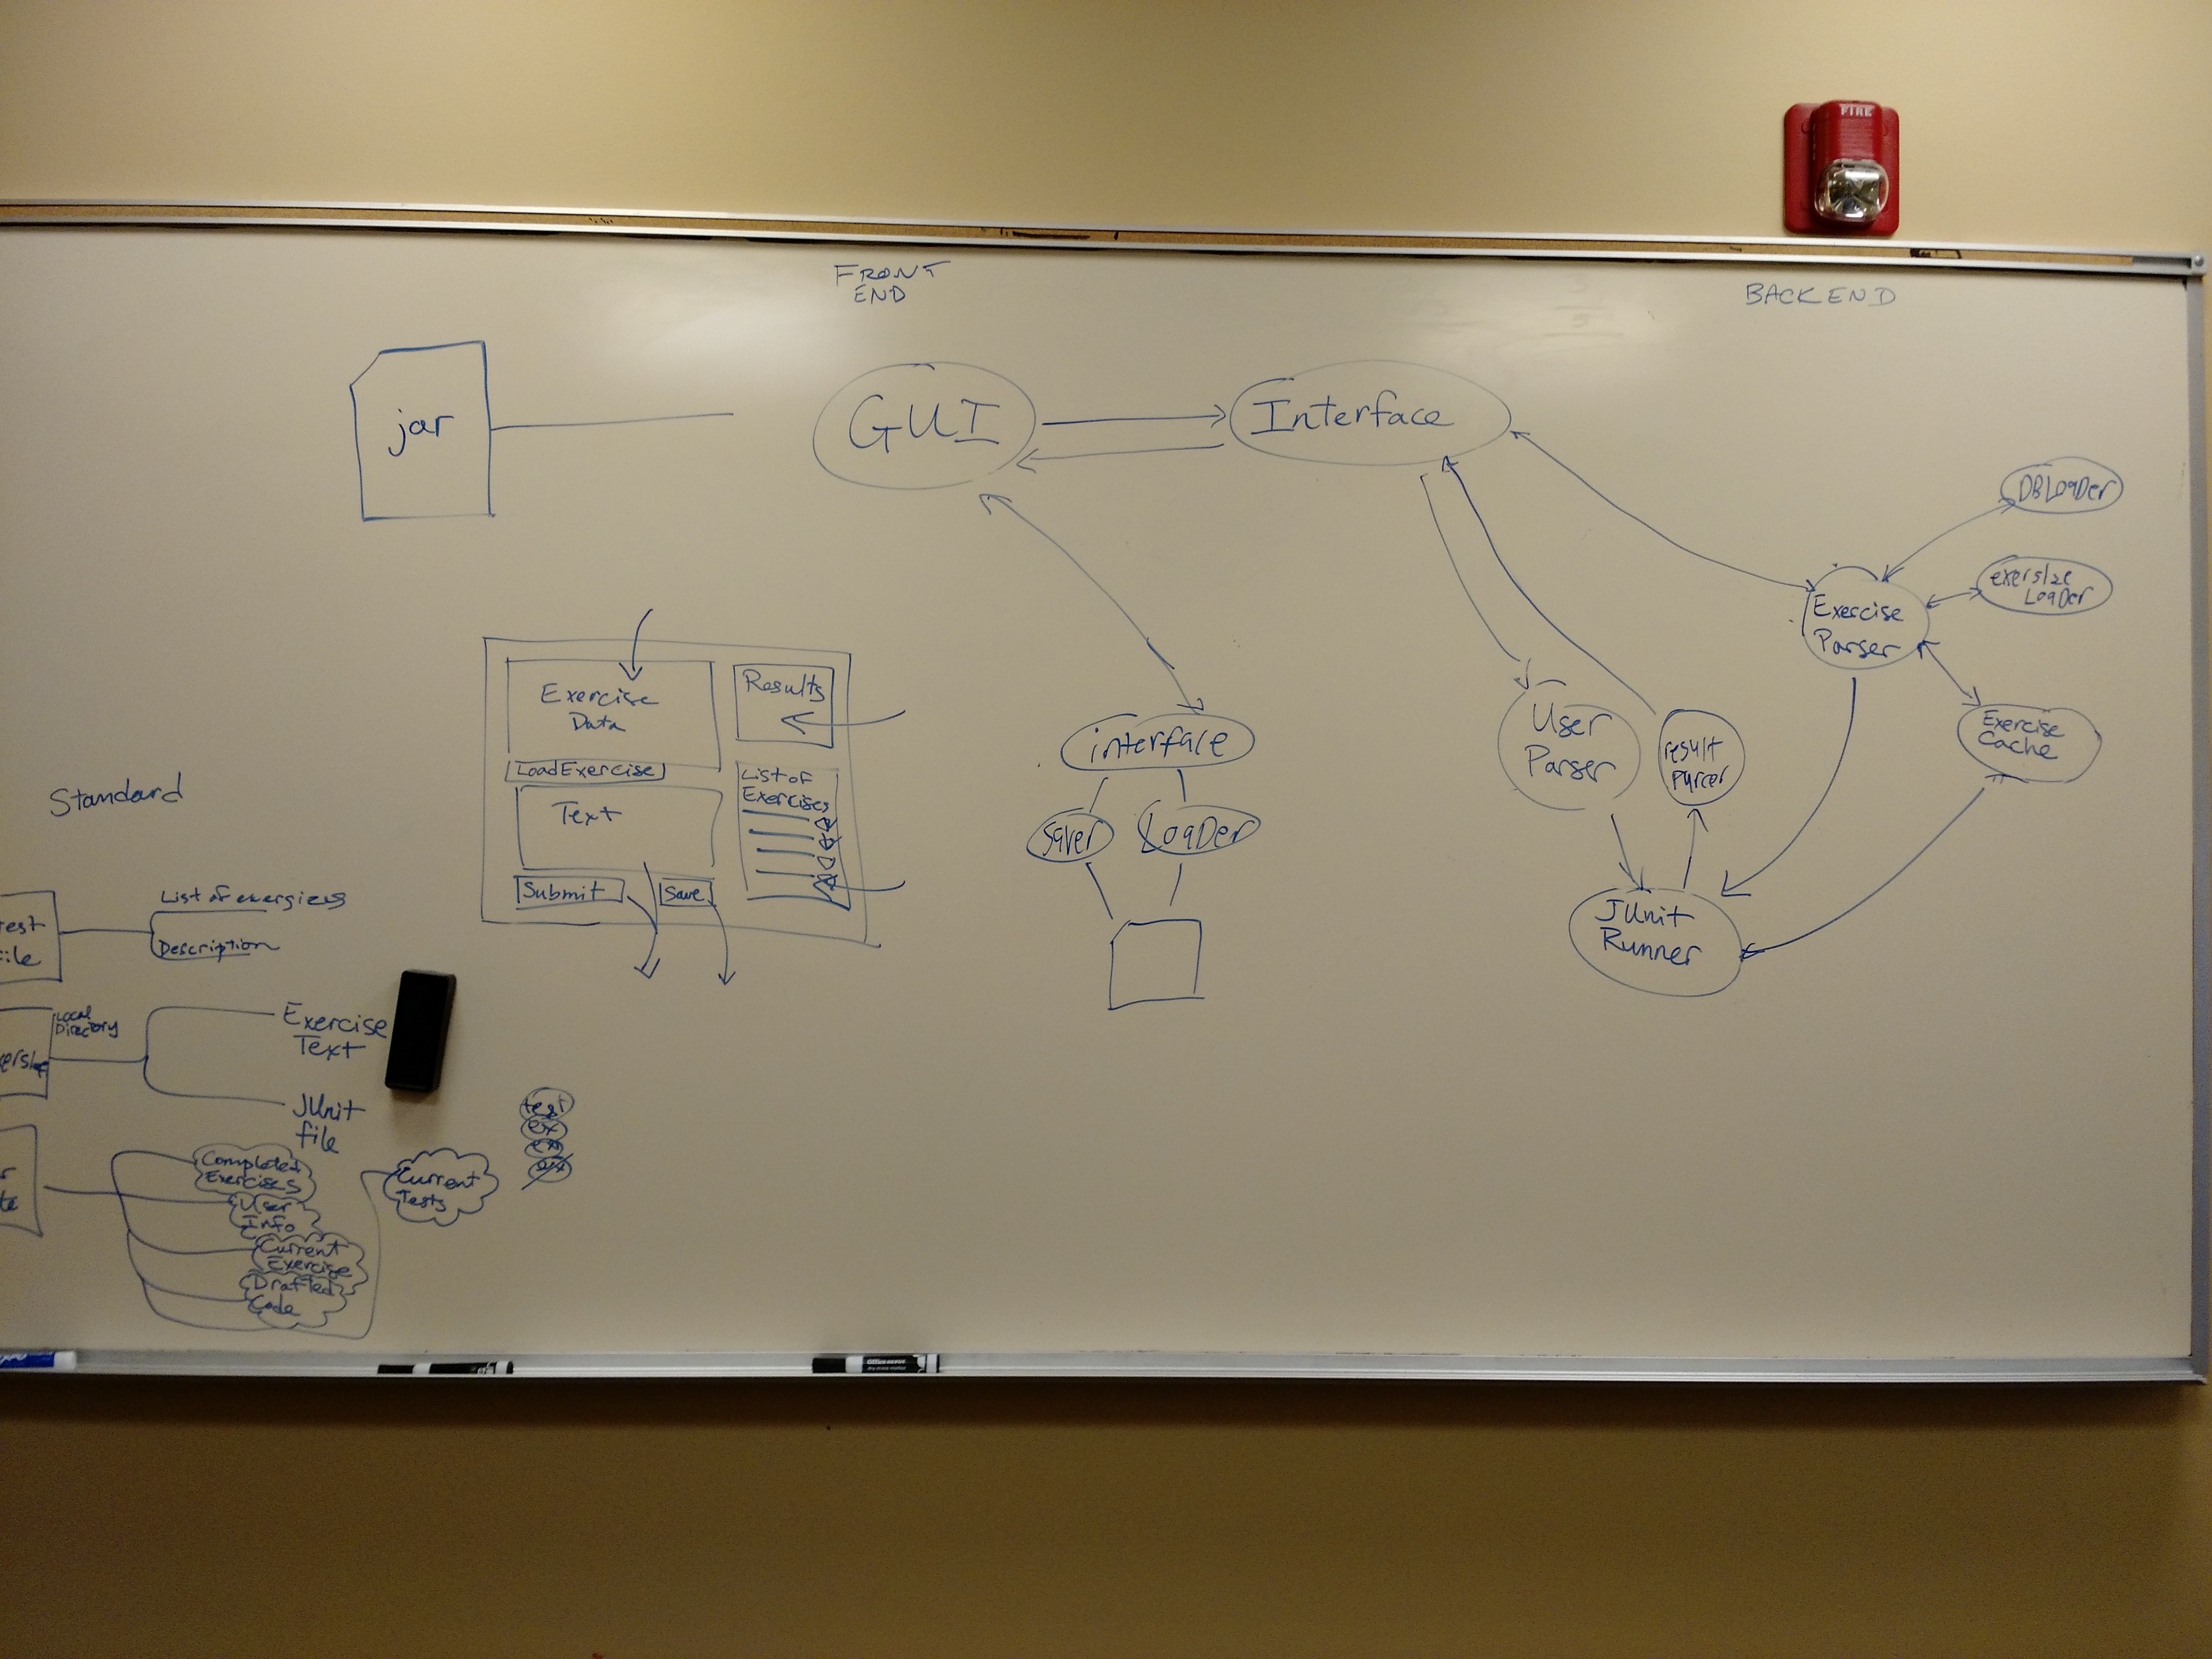 FIRE
FRONT
END
BACKEND
jar
GUI
Interface
DBLoaDer
exersize
LoaDer
Exercise
Parser
Exercise
Cache
User
Parser
result
parcer
JUnit
Runner
interface
saver
LoaDer
Exercise
Data
Results
LoadExercise
List of
Exercises
Text
Submit
Save
Standard
test
file
List of exergizes
Description
Local
Directory
Exercise
Text
JUnit
file
Completed
Exercises
User
Info
Current
Exercise
Drafted
Code
Current
Tests
test
ex
ex
ex